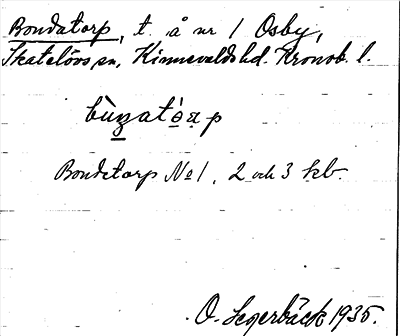 Bondatorp, t. å nr 1 Osby,
Skatelövs sn, Kinnevalds hd. Kronob. l.
Bondetorp No 1, 2 och 3 kb.
O. Segerbäck 1935.